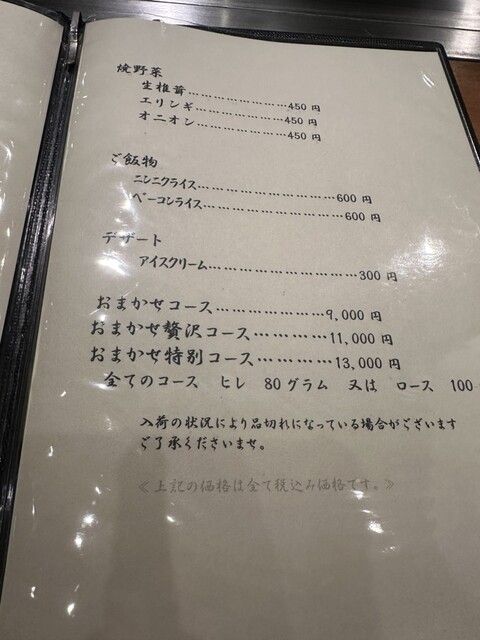 焼野菜
生椎茸……………………450 円
エリンギ……………………450 円
オニオン……………………450 円
ご飯物
ニンニクライス……………………………600 円
ベーコンライス……………………………600 円
デザート
アイスクリーム………………………………300 円
おまかせコース…………………9,000 円
おまかせ贅沢コース…………11,000 円
おまかせ特別コース…………13,000 円
全てのコース ヒレ 80グラム 又は ロース 100
入荷の状況により品切れになっている場合がございます
ご了承くださいませ。
≪上記の価格は全て税込み価格です。≫